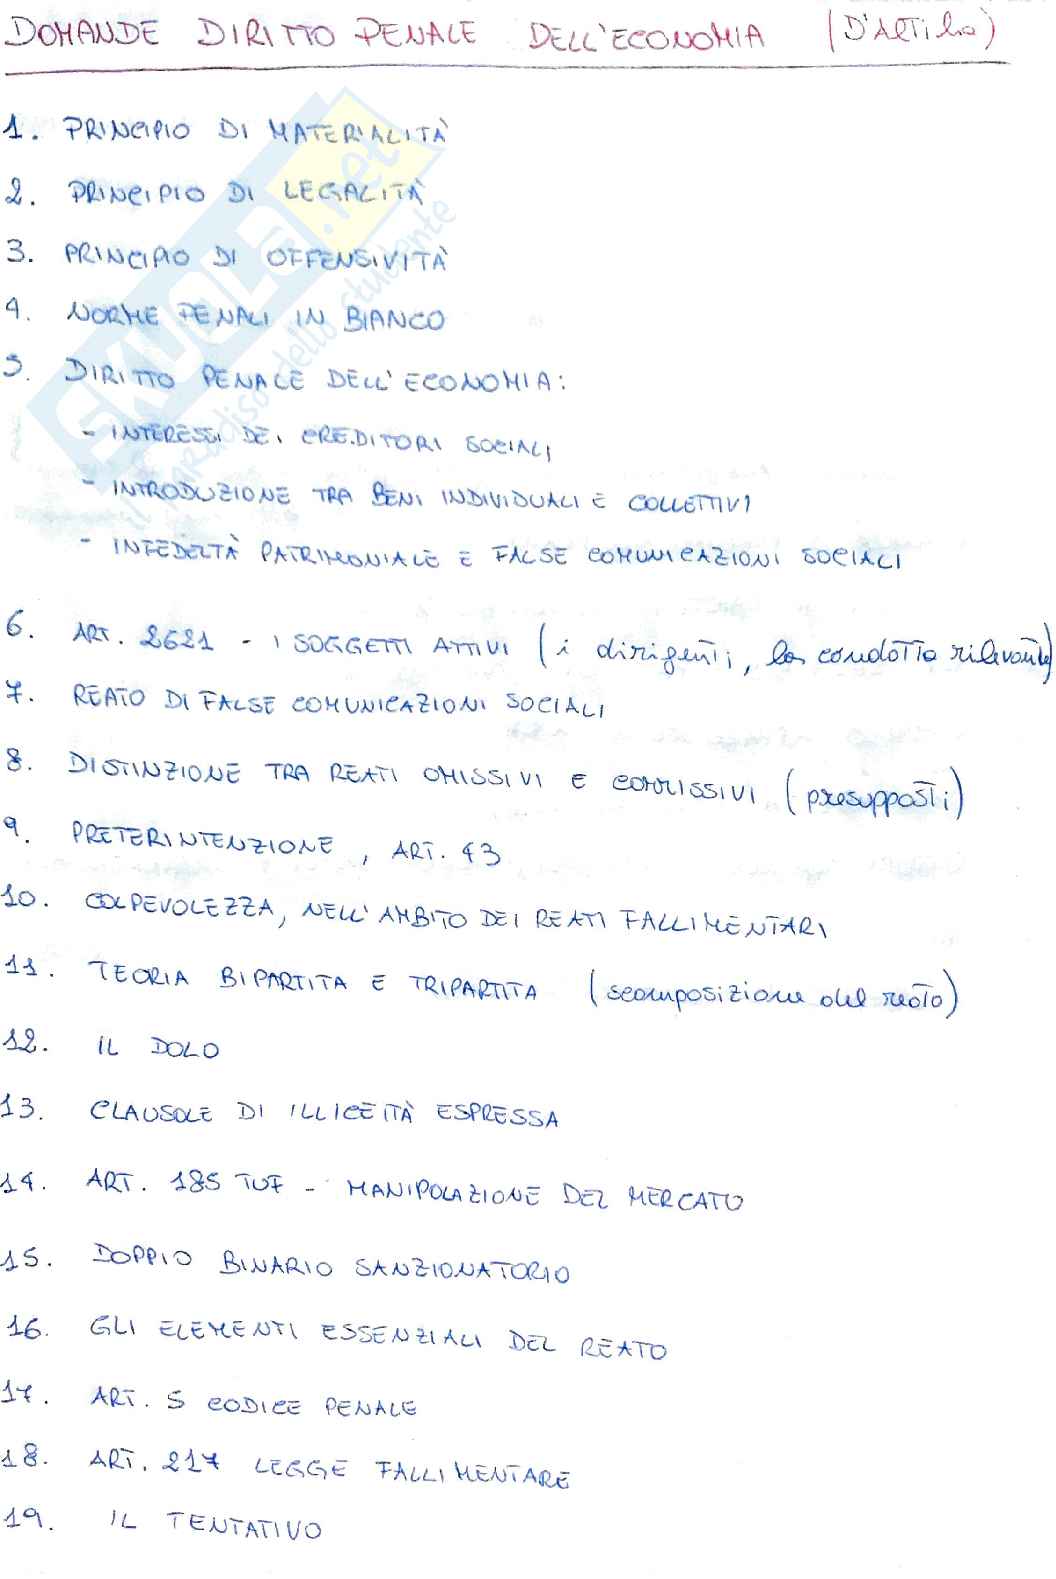 DOMANDE DIRITTO PENALE DELL'ECONOMIA (D'ARTILIO)
1. PRINCIPIO DI MATERIALITÀ
2. PRINCIPIO DI LEGALITÀ
3. PRINCIPIO DI OFFENSIVITÀ
4. NORME PENALI IN BIANCO
5. DIRITTO PENALE DELL'ECONOMIA:
- INTERESSI DEI CREDITORI SOCIALI
- INTRODUZIONE TRA BENI INDIVIDUALI E COLLETTIVI
- INFEDELTÀ PATRIMONIALE E FALSE COMUNICAZIONI SOCIALI
6. ART. 2621 - I SOGGETTI ATTIVI (i dirigenti, la condotta rilevante)
7. REATO DI FALSE COMUNICAZIONI SOCIALI
8. DISTINZIONE TRA REATI OMISSIVI E COMMISSIVI (presupposti)
9. PRETERINTENZIONE, ART. 43
10. COLPEVOLEZZA, NELL'AMBITO DEI REATI FALLIMENTARI
11. TEORIA BIPARTITA E TRIPARTITA (scomposizione del reato)
12. IL DOLO
13. CLAUSOLE DI ILLICEITÀ ESPRESSA
14. ART. 185 TUF - MANIPOLAZIONE DEL MERCATO
15. DOPPIO BINARIO SANZIONATORIO
16. GLI ELEMENTI ESSENZIALI DEL REATO
17. ART. 5 CODICE PENALE
18. ART. 217 LEGGE FALLIMENTARE
19. IL TENTATIVO
SKUOLA.net
il paradiso dello studente